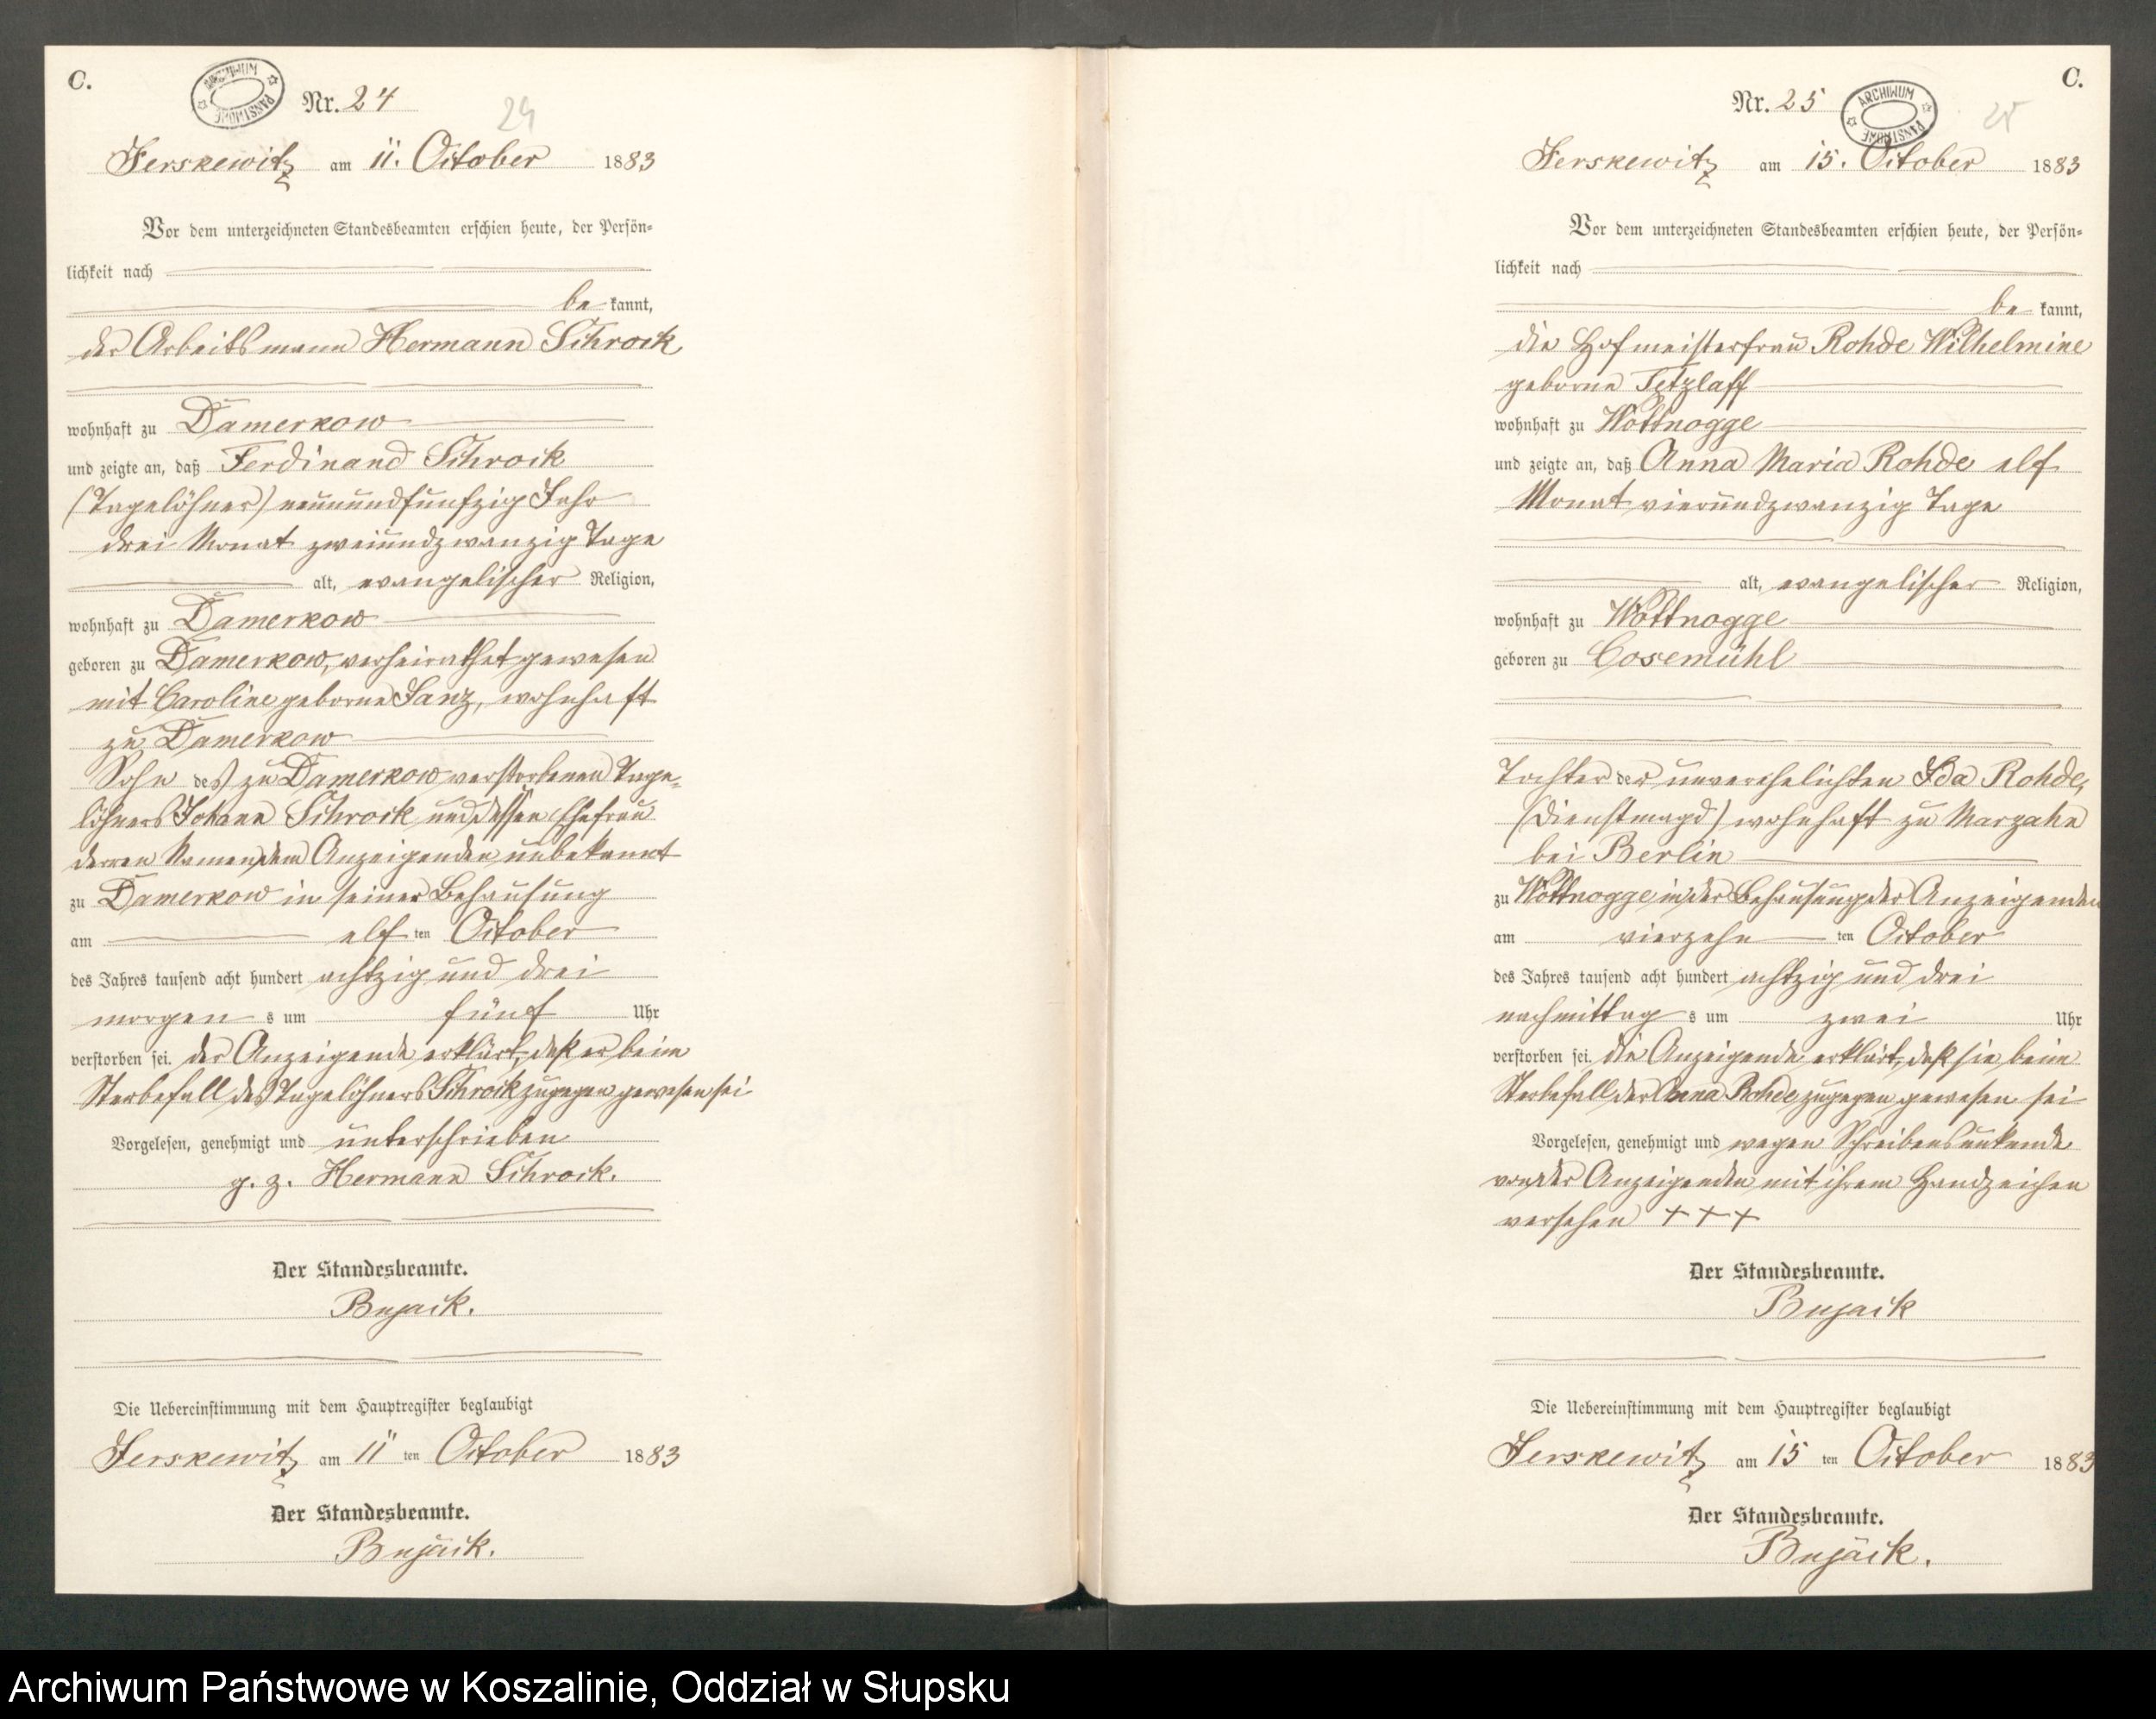 C.
ARCHIWUM PAŃSTWOWE
Nr. 24
24
Jerskewitz am 11. October 1883
Vor dem unterzeichneten Standesbeamten erschien heute, der Persön=
lichkeit nach
be kannt,
der Arbeitsmann Hermann Schrock
wohnhaft zu Damerkow
und zeigte an, daß Ferdinand Schrock
(Tagelöhner) neunundfünfzig Jahr
drei Monat zweiundzwanzig Tage
alt, evangelischer Religion,
wohnhaft zu Damerkow
geboren zu Damerkow, verheirathet gewesen
mit Caroline geborne Janz, wohnhaft
zu Damerkow
Sohn des zu Damerkow verstorbenen Tage=
löhners Johann Schrock und dessen Ehefrau
derren Namen dem Anzeigenden unbekannt
zu Damerkow in seiner Behausung
am elf ten October
des Jahres tausend acht hundert achtzig und drei
morgen s um fünf Uhr
verstorben sei. der Anzeigende erklärt, daß er beim
Sterbefall des Tagelöhners Schrock zugegen gewesen sei
Vorgelesen, genehmigt und unterschrieben
g. z. Hermann Schrock.
Der Standesbeamte.
Bujack.
Die Uebereinstimmung mit dem Hauptregister beglaubigt
Jerskewitz am 11 ten October 1883
Der Standesbeamte.
Bujack.
C.
Nr. 25
ARCHIWUM PAŃSTWOWE
25
Jerskewitz am 15. October 1883
Vor dem unterzeichneten Standesbeamten erschien heute, der Persön=
lichkeit nach
be kannt,
die Hofmeisterfrau Rohde Wilhelmine
geborne Tetzlaff
wohnhaft zu Wottnogge
und zeigte an, daß Anna Maria Rohde elf
Monat vierundzwanzig Tage
alt, evangelischer Religion,
wohnhaft zu Wottnogge
geboren zu Cosemühl
Tochter der unverehelichten Ida Rohde,
(Dienstmagd) wohnhaft zu Marzahn
bei Berlin
zu Wottnogge in der Behausung der Anzeigenden
am vierzehn ten October
des Jahres tausend acht hundert achtzig und drei
nachmittag s um zwei Uhr
verstorben sei. die Anzeigende erklärt, daß sie beim
Sterbefall der Anna Rohde zugegen gewesen sei
Vorgelesen, genehmigt und wegen Schreibensunkunde
von der Anzeigenden mit ihrem Handzeichen
versehen + + +
Der Standesbeamte.
Bujack
Die Uebereinstimmung mit dem Hauptregister beglaubigt
Jerskewitz am 15 ten October 1883
Der Standesbeamte.
Bujack.
Archiwum Państwowe w Koszalinie, Oddział w Słupsku